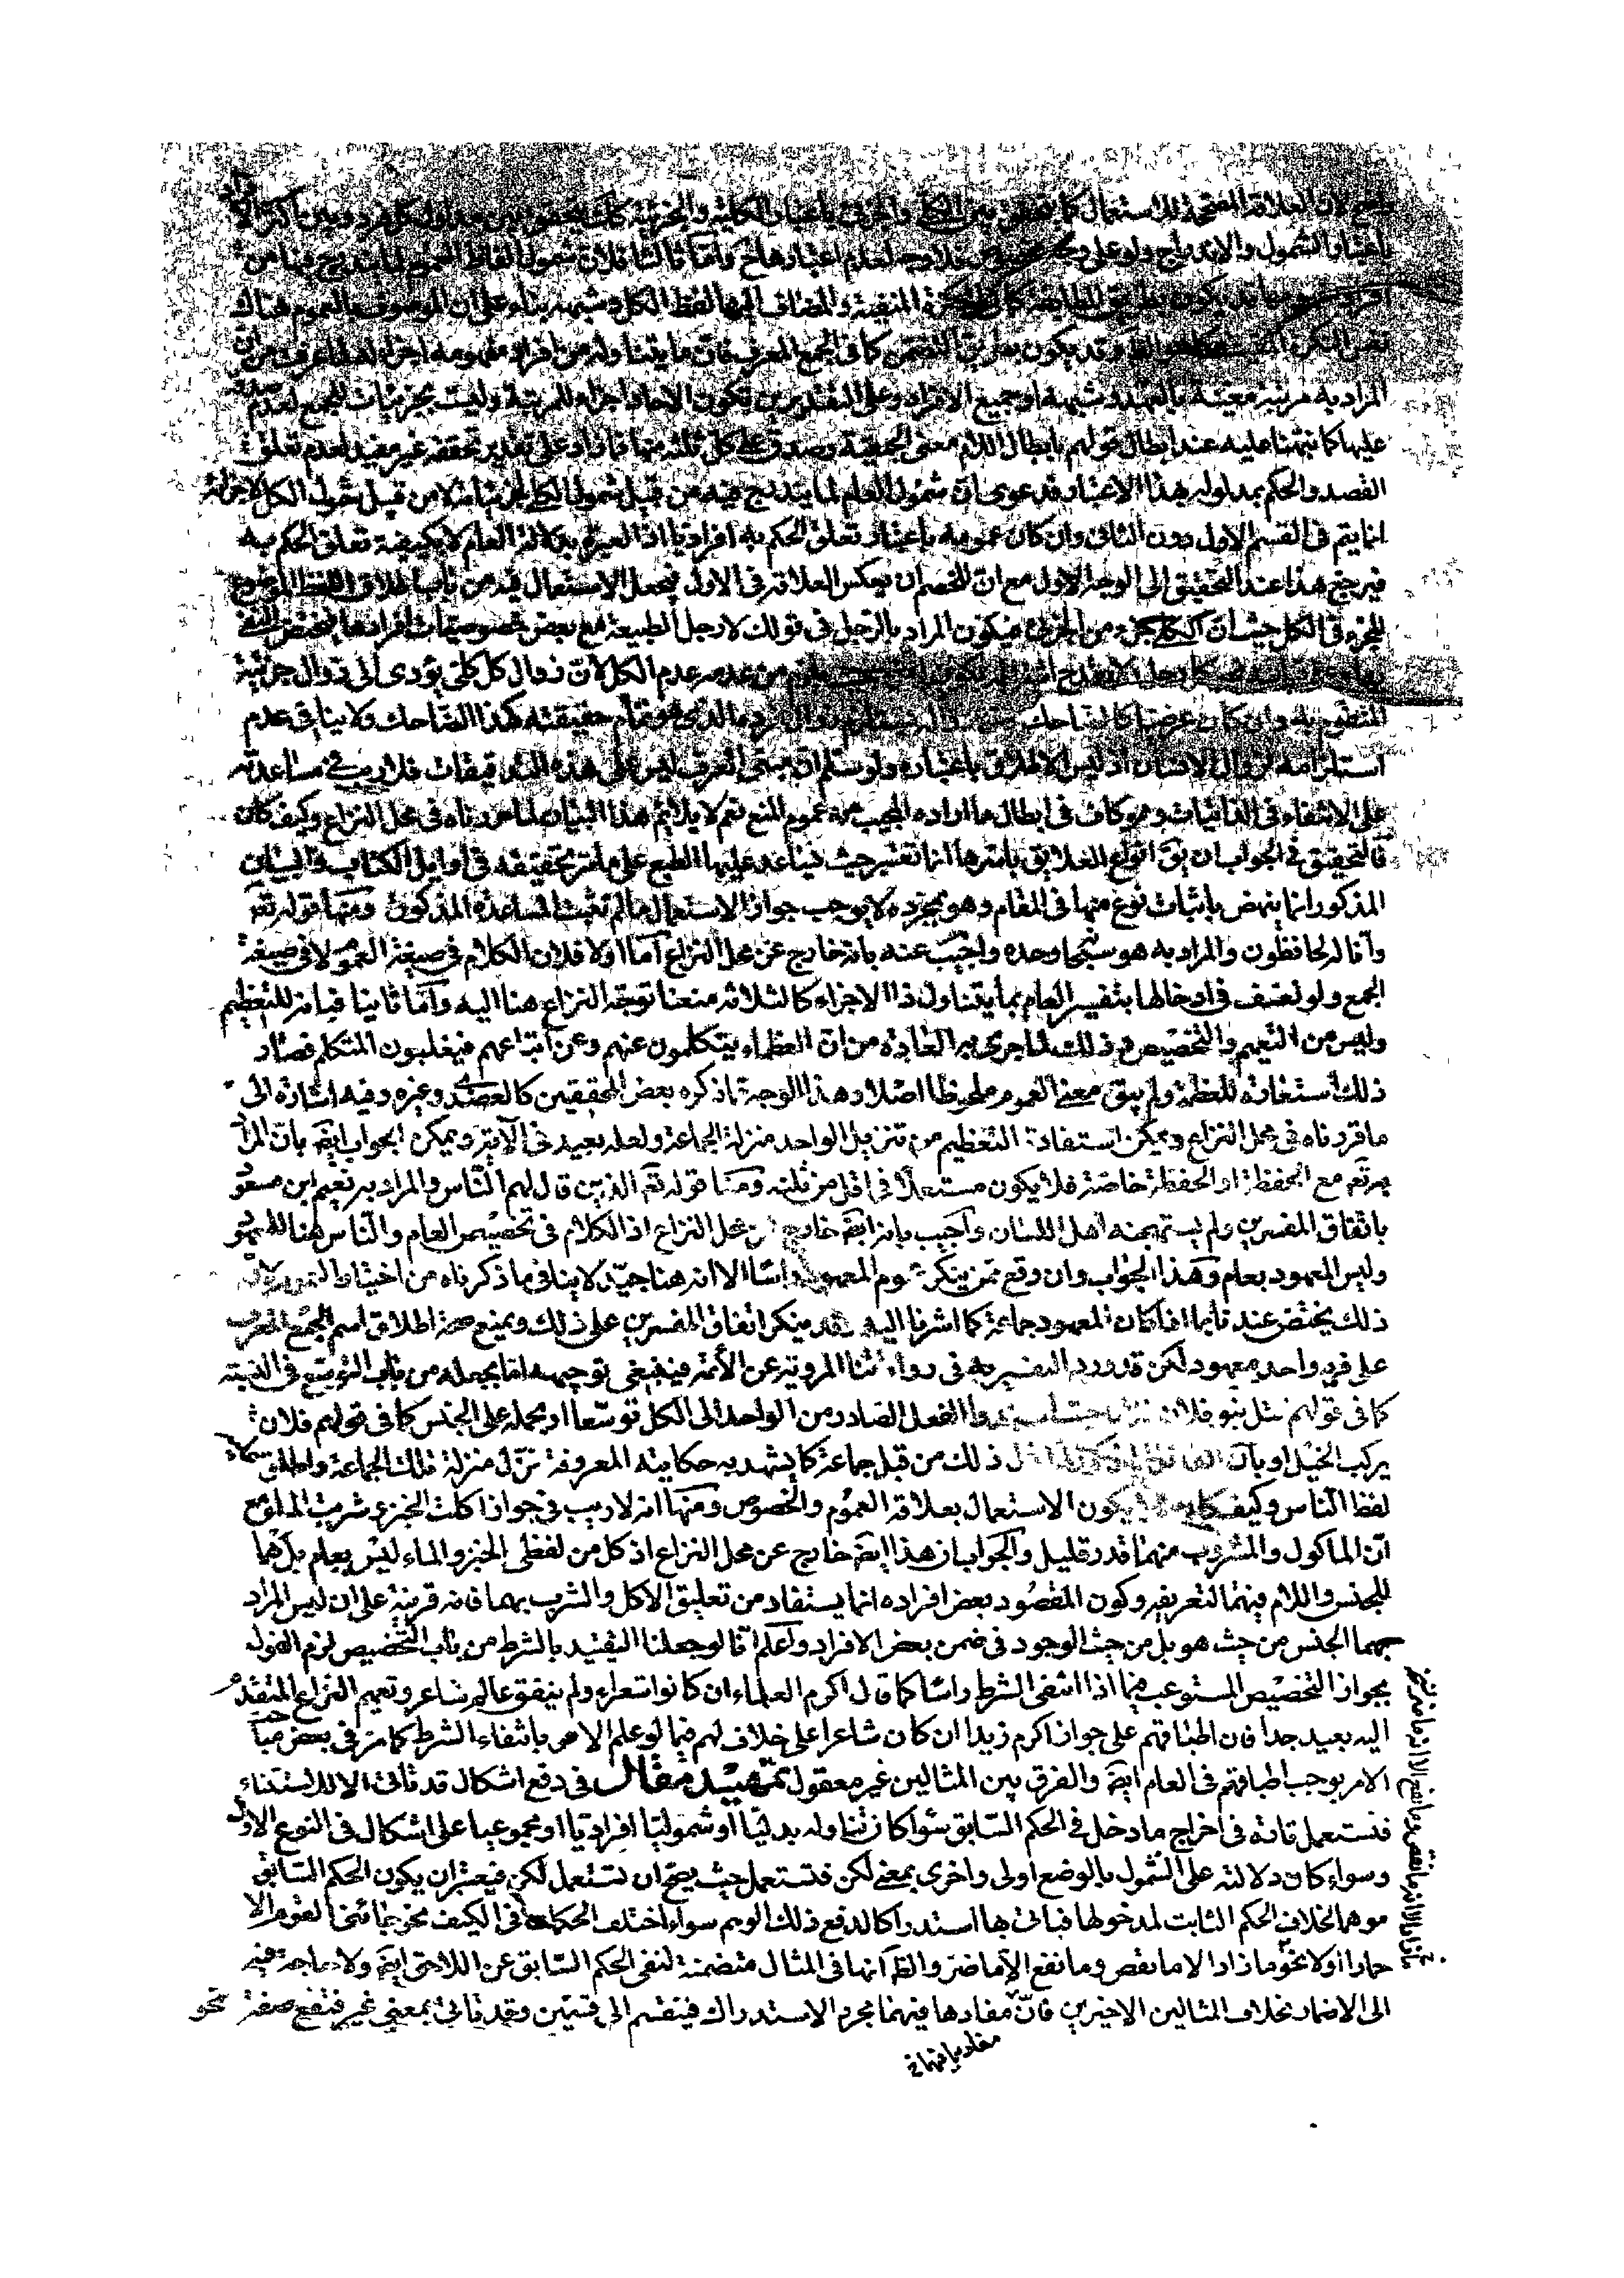 واضح لان العلاقة المصححة للاستعمال كما يتحقق بين الكلي والجزئي باعتبار الكلية والجزئية كك يتحقق بين مدلول كل فرد وبين اكثر الافراد
باعتبار الشمول والاندراج ولو على وجه فلا وجه لعدم اعتبارها ح واما ثالثا فلان شمول الفاظ العموم لما يندرج فيها من
قد يكون بطريق المطابقة كما في النكرة المنفية والمضاف اليها لفظ الكل وشبهه بناء على ان الموصوف بالعموم هناك
نفس النكرة وقد يكون بطريق التضمن كما في الجمع المعرف فان ما يتناوله من افراد مفهومه اجزاء له لما عرفت من ان
المراد به مرتبة معينة بالعهد وشبهه او جميع الافراد وعلى التقديرين تكون الاحاد اجزاء للمرتبة وليست بجزئيات للجمع لعدم صدقه
عليها كما نبهنا عليه عند ابطال قولهم بابطال اللام معنى الجمعية وصدقه على كل ثلثة منها فما زاد على تقدير تحققه غير مفيد لعدم تعلق
القصد والحكم بمدلوله بهذا الاعتبار فدعوى ان شمول العام لما يندرج فيه من قبيل شمول الكلي لجزئياته لا من قبيل شمول الكل لاجزائه
انما يتم في القسم الاول دون الثاني وان كان عمومه باعتبار تعلق الحكم به افراديا اذ العبرة بدلالة العام لا بكيفية تعلق الحكم به
فيرجع هذا عند التحقيق الى الوجه الاول مع ان للخصم ان يعكس العلاقة في الاول فيجعل الاستعمال فيه من باب اطلاق اللفظ الموضوع
للجزء في الكل حيث ان الكلي جزء من الجزئي فيكون المراد بالرجل في قولك لا رجل الطبيعة مع بعض خصوصيات افرادها فيختص النفي
من عدمه عدم الكل لان زوال كل كلي يؤدي الى زوال جزئية
المتقوم به وان كان عرضيا كالضاحك هو تمام حقيقته كهذا الضاحك ولا ينافي عدم
استلزامه لزوال الانسان اذ ليس الاطلاق باعتباره ولو سلم ان مبنى العرف ليس على هذه التدقيقات فلا ريب في مساعدته
على الانتفاء في الذاتيات وهو كاف في ابطال ما اراده المجيب من عموم المنع نعم لا يلائم هذا البيان لما مرناه في محل النزاع وكيف كان
فالتحقيق في الجواب ان يق انواع العلايق باسرها انما تعتبر حيث يساعد عليها الطبع على ما مر تحقيقه في اوايل الكتاب والبيان
المذكور انما ينهض باثبات نوع منها في المقام وهو بمجرده لا يوجب جواز الاستعمال ما لم تثبت المساعدة المذكورة ومنها قوله تعم
وانا له لحافظون والمراد به هو سبحانه وحده واجيب عنه بانه خارج عن محل النزاع اما اولا فلان الكلام في صيغة العموم لا في صيغة
الجمع ولو تعسف في ادخالها بتفسير العام بما يتناول ذا الاجزاء كالثلاثة منعنا توجه النزاع هنا اليه واما ثانيا فبانه للتعظيم
وليس من التعميم والتخصيص في ذلك لما جرى به العادة من ان العظماء يتكلمون عنهم وعن اتباعهم فيغلبون المتكلم فصار
ذلك استعارة للعظمة ولم يبق معنى العموم ملحوظا اصلا وهذا الوجه مما ذكره بعض المحققين كالعضدي وغيره وفيه اشارة الى
ما قررناه في محل النزاع ويمكن استفادة التعظيم من تنزيل الواحد منزلة الجماعة ولعله بعيد في الآية ويمكن الجواب ايضا بان المراد
به تعم مع الحفظة او الحفظة خاصة فلا يكون مستعملا في اقل من ثلثة ومنها قوله تعم الذين قال لهم الناس والمراد به نعيم ابن مسعود
باتفاق المفسرين ولم يستهجنه اهل اللسان واجيب بانه ايضا خارج عن محل النزاع اذ الكلام في تخصيص العام والناس هنا للمعهود
وليس المعهود بعام وهذا الجواب وان وقع ممن ينكر عموم المعهود راسا الا انه هنا جيد لا ينافي ما ذكرناه من اختيار العموم لان
ذلك يختص عندنا بما اذا كان المعهود جماعة كما اشرنا اليه وقد ينكر اتفاق المفسرين على ذلك ويمنع صحة اطلاق اسم الجمع المعرف
على فرد واحد معهود لكن قد ورد التفسير به في رواياتنا المروية عن الأئمة فينبغي توجيهه اما بجعله من باب التوسع في النسبة
كما في قولهم قتل بنو فلان حيث اسندوا الفعل الصادر من الواحد الى الكل توسعا او بحمله على الجنس كما في قولهم فلان
يركب الخيل او بان ذلك من قبل جماعة كما يشهد به حكايته المعروفة نزل منزلة تلك الجماعة واطلق مكانه
لفظ الناس وكيف كان لا يكون الاستعمال بعلاقة العموم والخصوص ومنها انه لا ريب في جواز اكلت الخبز وشربت الماء مع
ان الماكول والمشروب منهما قدر قليل والجواب ان هذا ايضا خارج عن محل النزاع اذ كل من لفظي الخبز والماء ليس بعام بل هما
للجنس واللام فيهما لتعريفه وكون المقصود بعض افراده انما يستفاد من تعليق الاكل والشرب بهما فانه قرينة على ان ليس المراد
بهما الجنس من حيث هو بل من حيث الوجود في ضمن بعض الافراد واعلم انا لو جعلنا التقييد بالشرط من باب التخصيص لزم القول
بجواز التخصيص المستوعب فيما اذا انتفى الشرط راسا كما قال اكرم العلماء ان كانوا شعراء ولم يتفق عالم شاعر وتعميم النزاع المتقدم
اليه بعيد جدا فان اطباقهم على جواز اكرم زيدا ان كان شاعرا على خلاف لهم فيما لو علم الامر بانتفاء الشرط كما مر في بعض مباحث
الامر يوجب اطباقهم في العام ايضا والفرق بين المثالين غير معقول تمهيد مقال في دفع اشكال قد تاتي الا للاستثناء
فتستعمل تارة في اخراج ما دخل في الحكم السابق سواء كان تناوله بدليا او شموليا افراديا او مجموعيا على اشكال في النوع الاول
وسواء كان دلالته على الشمول بالوضع اولى واخرى بمعنى لكن فتستعمل حيث يصح ان تستعمل لكن فيعتبر ان يكون الحكم السابق
موهما لخلاف الحكم الثابت لمدخولها فيأتي بها استدراكا لدفع ذلك الوهم سواء اختلف الحكمان في الكيف نحو جائني القوم الا
حمارا اولا نحو ما زاد الا ما نقص وما نفع الا ما ضر والظ انها في المثال متضمنة لنفي الحكم السابق عن اللاحق ايضا ولا حاجة فيه
الى الاضمار بخلاف المثالين الاخيرين فان مفادها فيهما مجرد الاستدراك فينقسم الى قسمين وقد تاتي بمعنى غير فتقع صفة نحو